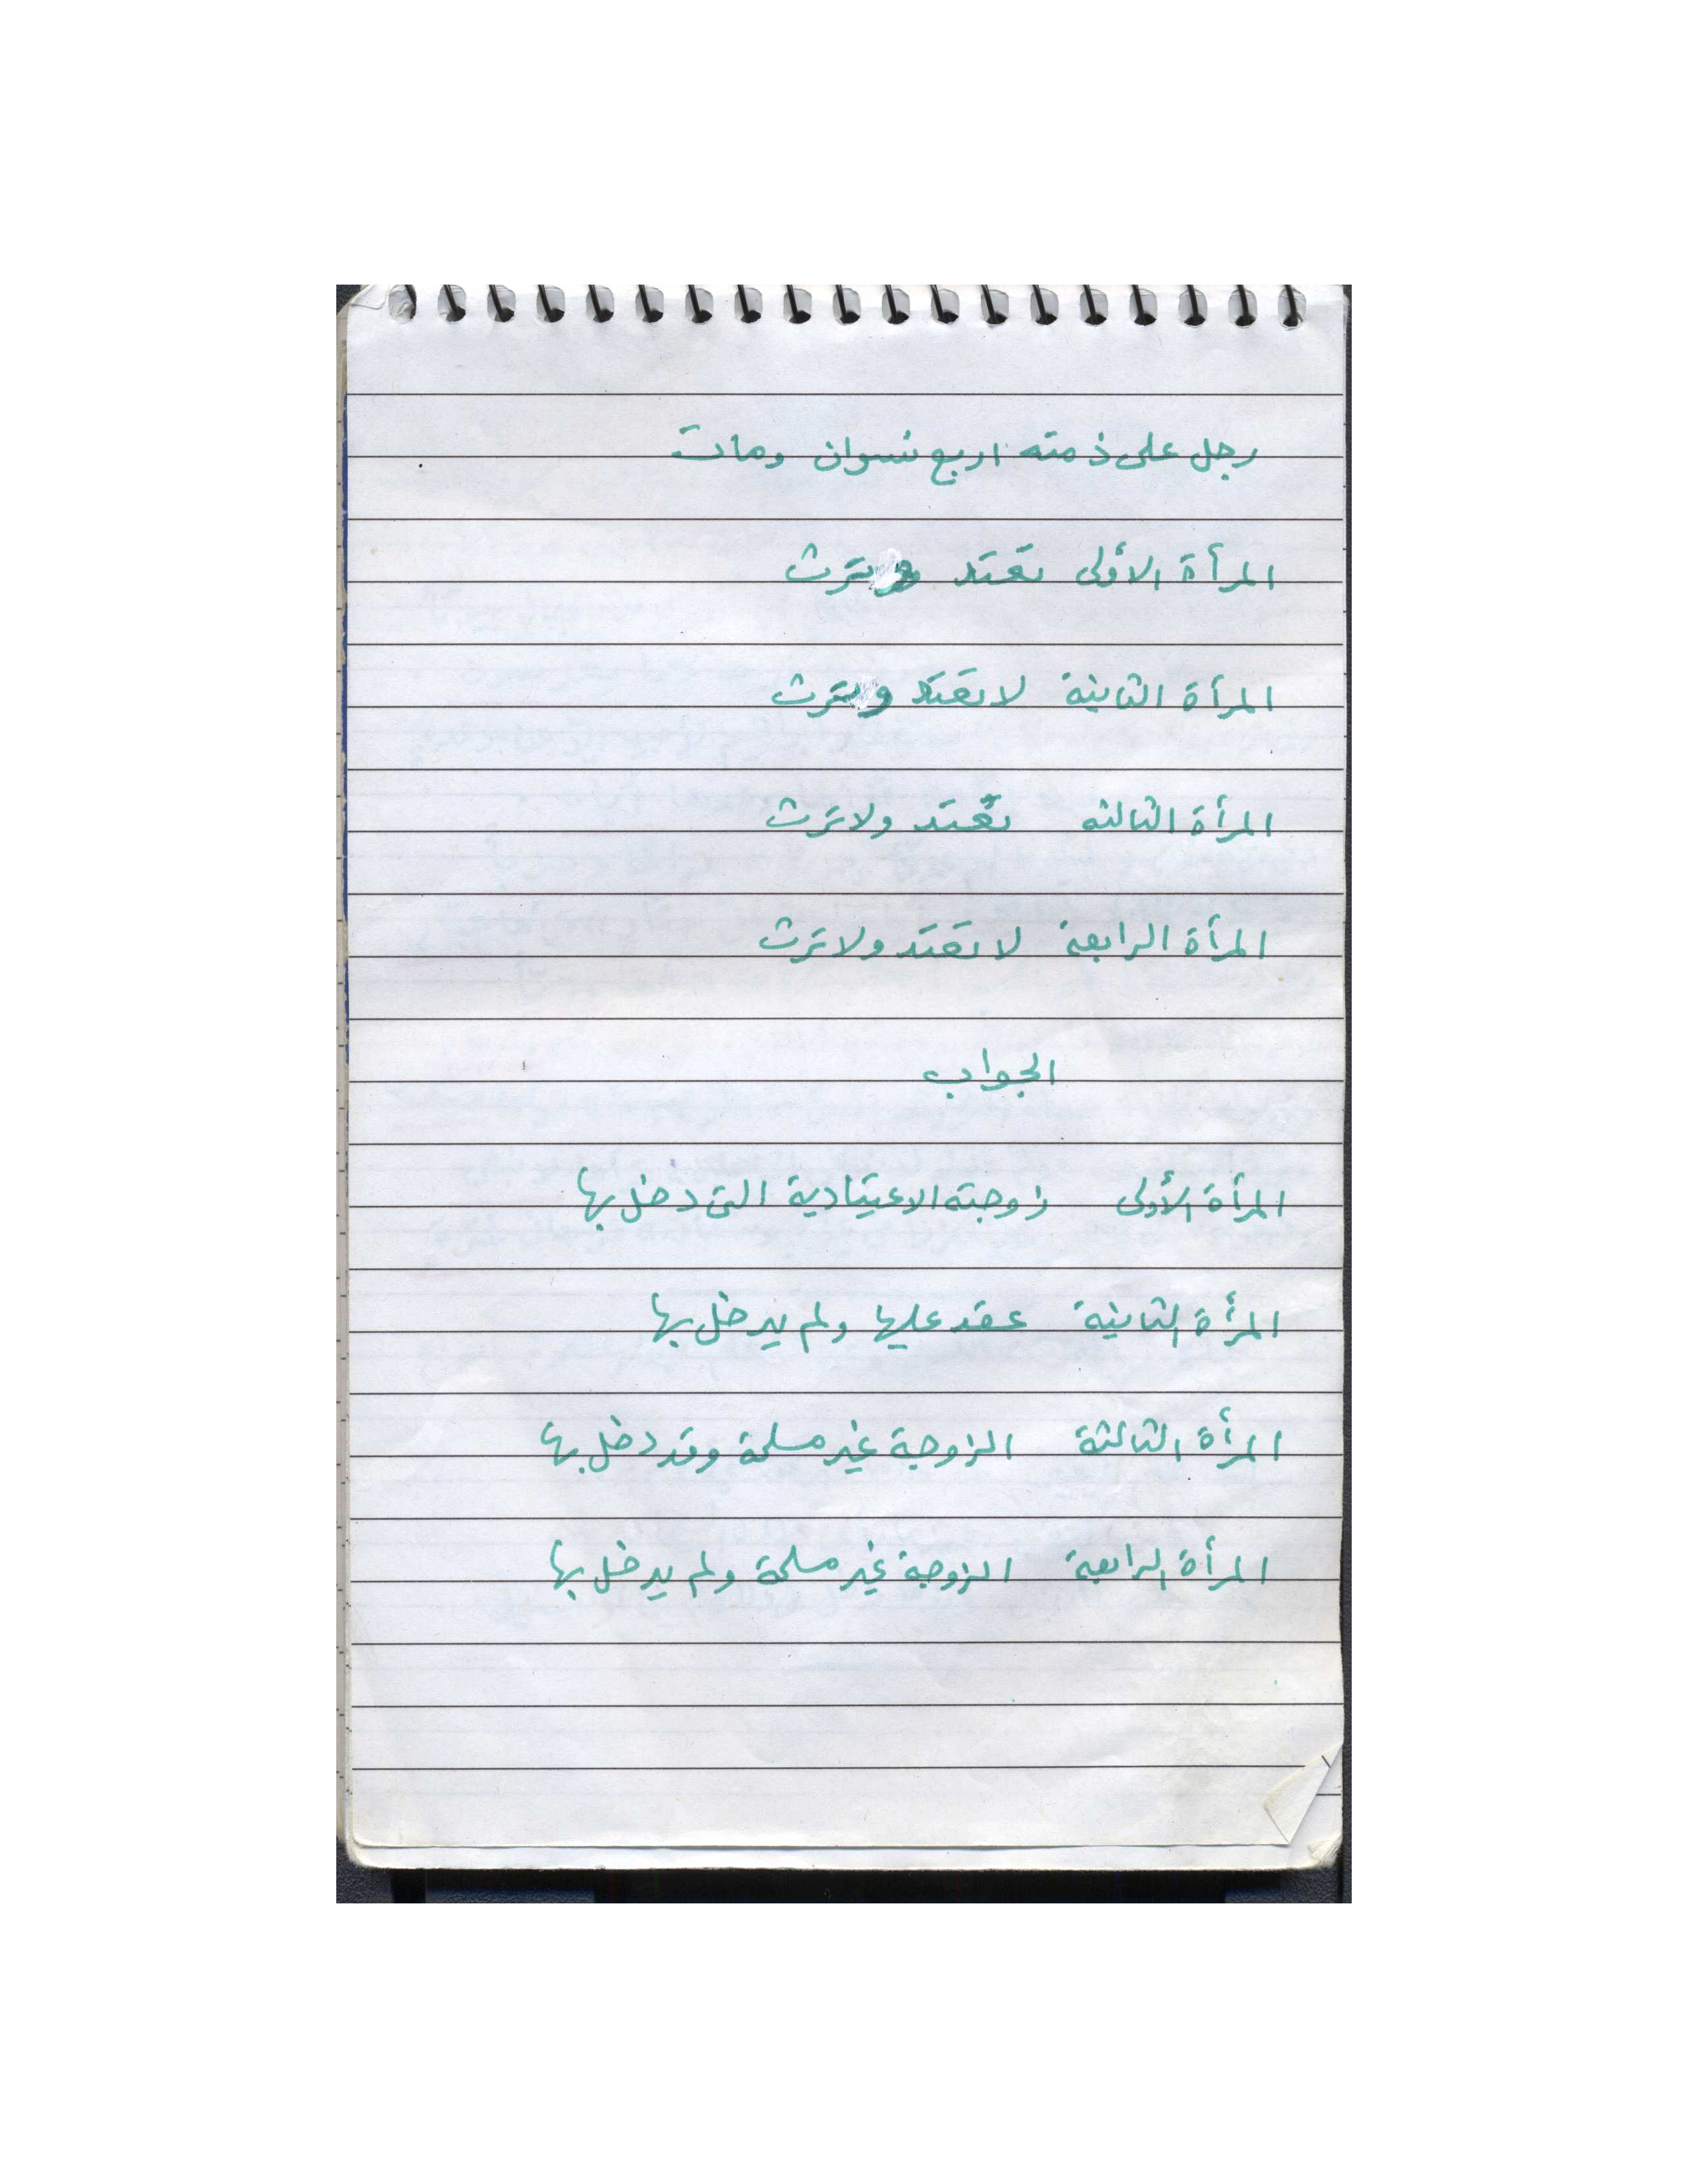 رجل على ذمته اربع نسوان ومات
المرأة الأولى تعتد وترث
المرأة الثانية لا تعتد وترث
المرأة الثالثه تعتد ولا ترث
المرأة الرابعة لا تعتد ولا ترث
الجواب
المرأة الأولى زوجته الاعتيادية التي دخل بها
المرأة الثانية عقد عليها ولم يدخل بها
المرأة الثالثة الزوجة غير مسلمة وقد دخل بها
المرأة الرابعة الزوجة غير مسلمة ولم يدخل بها